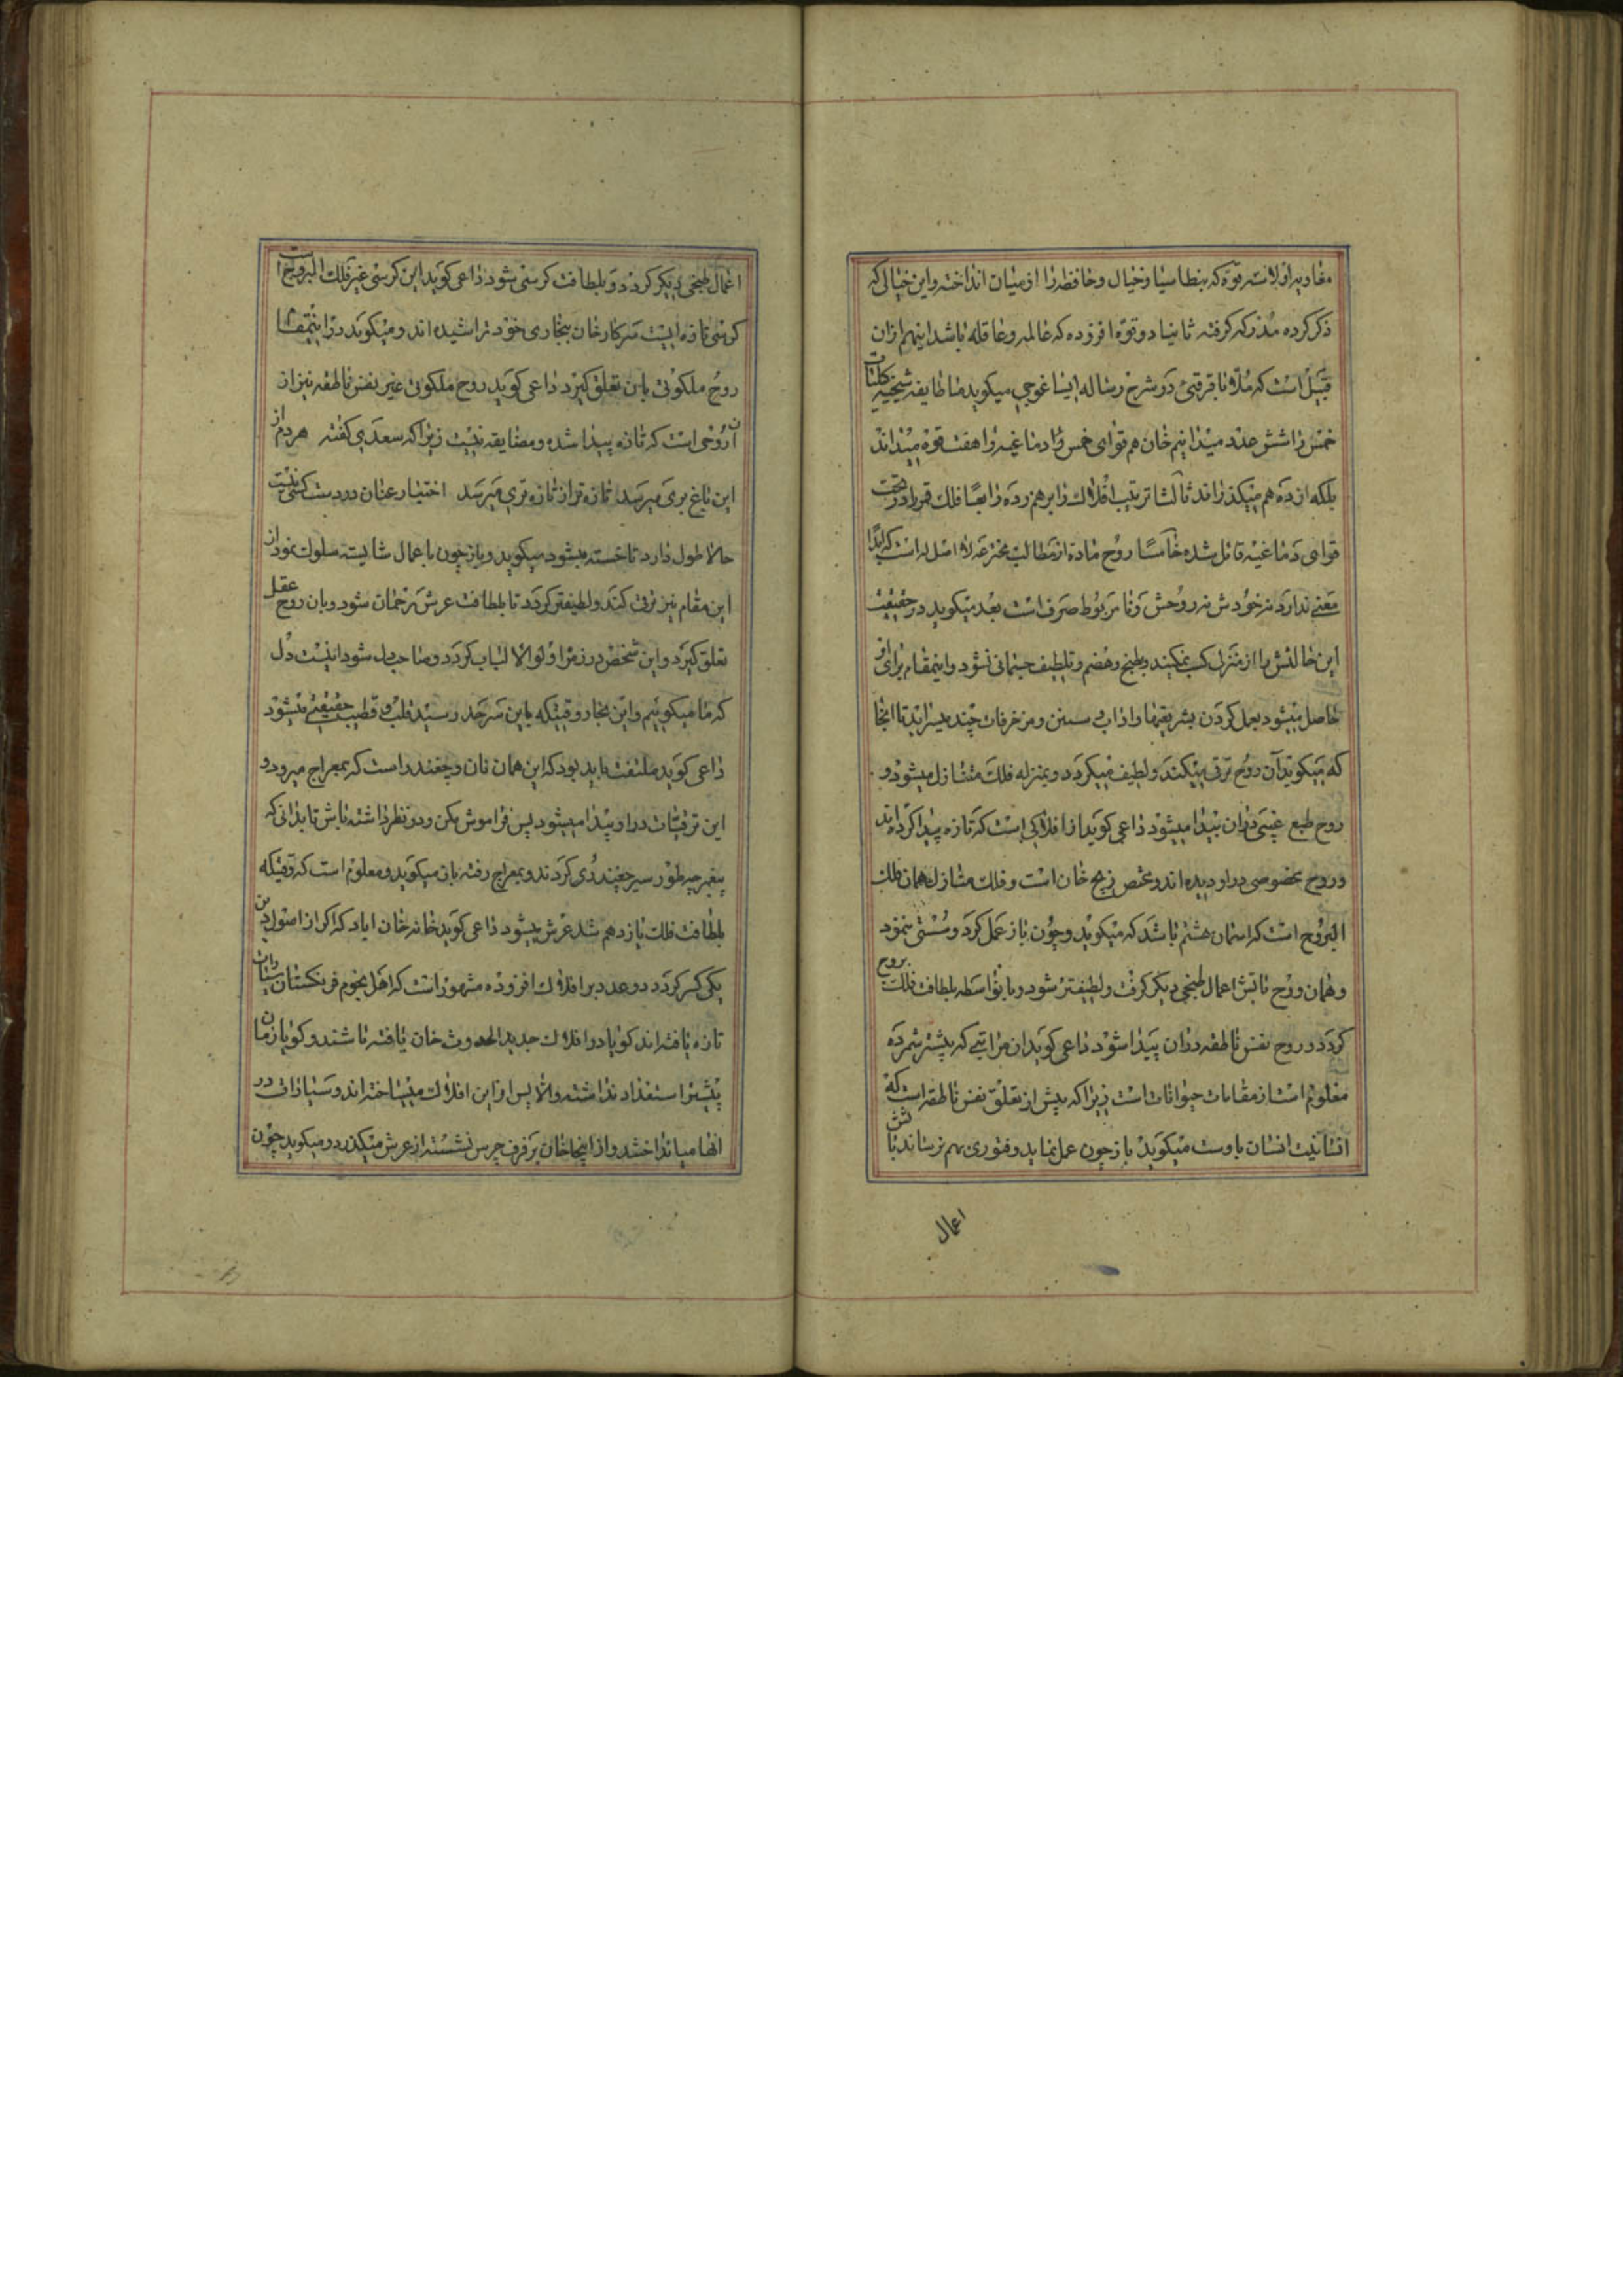 مفاد میر اولا سه قوه که بنطاسیا و خیال و حافظه را از میان انداخته و این خیالی که
ذکر کرده مدرکه گرفته ثانیا دو قوه افزوده که عالمه و عاقله باشد اینهم از آن
قبیل است که ملا باقر قبی در شرح رساله ایساغوجی میگوید ما طایفه شیخیه کلیات
خمس را شش عدد میدانیم خان هم قوای خمس دماغیه را هفت قوه میداند
بلکه از ده هم میگذراند ثالثا ترتیب افلاک را برهم زده رابعا فلک قمر را در تحت
قوای دماغیه قائل شده خامسا روح ماده از مطالب مخترعه لا اصل له است که ابدا
معنی ندارد نه خودش نه روحش و نامربوط صرف است بعد میگوید در حقیقت
این حالتش را از منزل کسب نمیکند و بطبخ و هضم و تلطیف جسمانی نشود و اینمقام برای او
حاصل میشود بعمل کردن بشریعتها و اداب و سنن و مزخرفات چند میسراید تا اینجا
که میگوید آن روح ترقی میکند و لطیف میگردد و بمنزله فلک منازل میشود و
روح طبع غیبی در آن پیدا میشود داعی گوید از افلاکی است که تازه پیدا کرده اند
و روح بخصوصی در او دیده اند و مختص زیج خان است و فلک منازل همان فلک
البروج است که اسمان هشتم باشد که میگوید و چون باز عمل کرد و سستی ننمود
و همان روح تابش اعمال طبخی دیگر گرفت و لطیفتر شود و باینواسطه بلطافت فلک بروج
گردد و روح نفس ناطقه در آن پیدا شود داعی گوید ان مراتبی که پیشتر شمرده
معلوم است از مقامات حیوانات است زیرا که پیش از تعلق نفس ناطقه است که
انسانیت انسان باوست میگوید باز چون عمل نماید و فتوری بهم نرساند بتابش
اعمال
اعمال طبخی دیگر گردد و بلطافت کرسی شود داعی گوید این کرسی غیر فلک البروج است
کرسی تازه ایست سرکار خان بنجاری خود تراشیده اند و میگوید در اینمقام
روح ملکوتی باین تعلق گیرد داعی گوید روح ملکوتی غیر نفس ناطقه نیز از
ان روحی است که تازه پیدا شده و مضایقه نیست زیرا که سعدی گفته هر دم از
این باغ بری میرسد تازه تر از تازه تری میرسد اختیار عنان در دست کسی نیست
حالا طول دارد تا خسته میشود میگوید و باز چون باعمال شایسته سلوک نمود از
این مقام نیز ترقی کند و لطیفتر گردد تا بلطافت عرش رحمان شود و بان روح عقل
تعلق گیرد و این شخص در زمره اولوالالباب گردد و صاحب دل شود اینست دل
که ما میگوییم و این بخار وقتیکه باین سرحد رسید قلب و قطب حقیقی میشود
داعی گوید ملتفت باید بود که این همان نان و چغندر است که بمعراج میرود و
این ترقیات در او پیدا میشود پس فراموش مکن و در نظر داشته باش تا بدانی که
پیغمبر چه طور سیر چغندری کردند و بمعراج رفته باز میگوید و معلوم است که وقتیکه
بلطافت فلک یازدهم شد عرش میشود داعی گوید خانه خان اباد که اگر از اصول دین
یکی کسر کرد دو عدد بر افلاک افزوده مشهور است که اهل نجوم فرنگستان سیارات
تازه یافته اند گویا در افلاک جدید الحدوث خان یافته باشند و گویا زمان
پیشتر استعداد نداشته والا پس از این افلاک میساخته اند و سیارات در
انها میانداختند و از اینجا خان بر فرف چرس نشسته از عرش میگذرد و میگوید چون